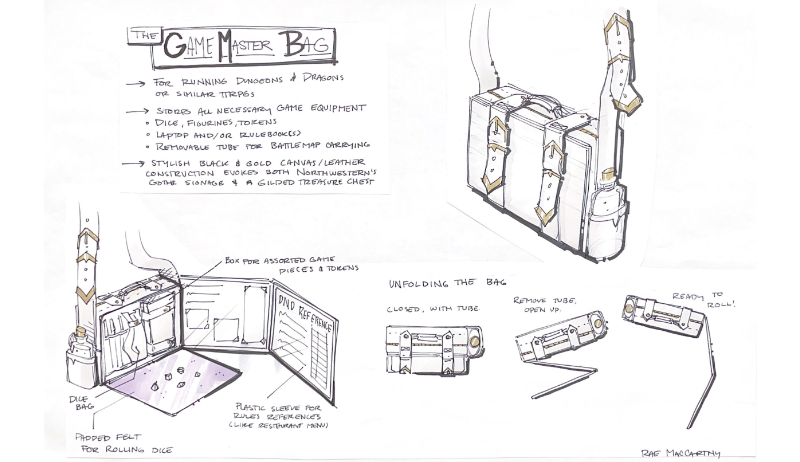 THE GAME MASTER BAG
→ FOR RUNNING DUNGEONS & DRAGONS
OR SIMILAR TTRPGS
→ STORES ALL NECESSARY GAME EQUIPMENT
• DICE, FIGURINES, TOKENS
• LAPTOP AND/OR RULEBOOK(S)
• REMOVABLE TUBE FOR BATTLEMAP CARRYING
→ STYLISH BLACK & GOLD CANVAS/LEATHER
CONSTRUCTION EVOKES BOTH NORTHWESTERN'S
GOTHIC SIGNAGE & A GILDED TREASURE CHEST
BOX FOR ASSORTED GAME
PIECES & TOKENS
DND REFERENCE
DICE
BAG
PADDED FELT
FOR ROLLING DICE
PLASTIC SLEEVE FOR
RULES REFERENCES
(LIKE RESTAURANT MENU)
UNFOLDING THE BAG
CLOSED, WITH TUBE.
REMOVE TUBE,
OPEN UP.
READY TO
ROLL!
RAE MACCARTHY